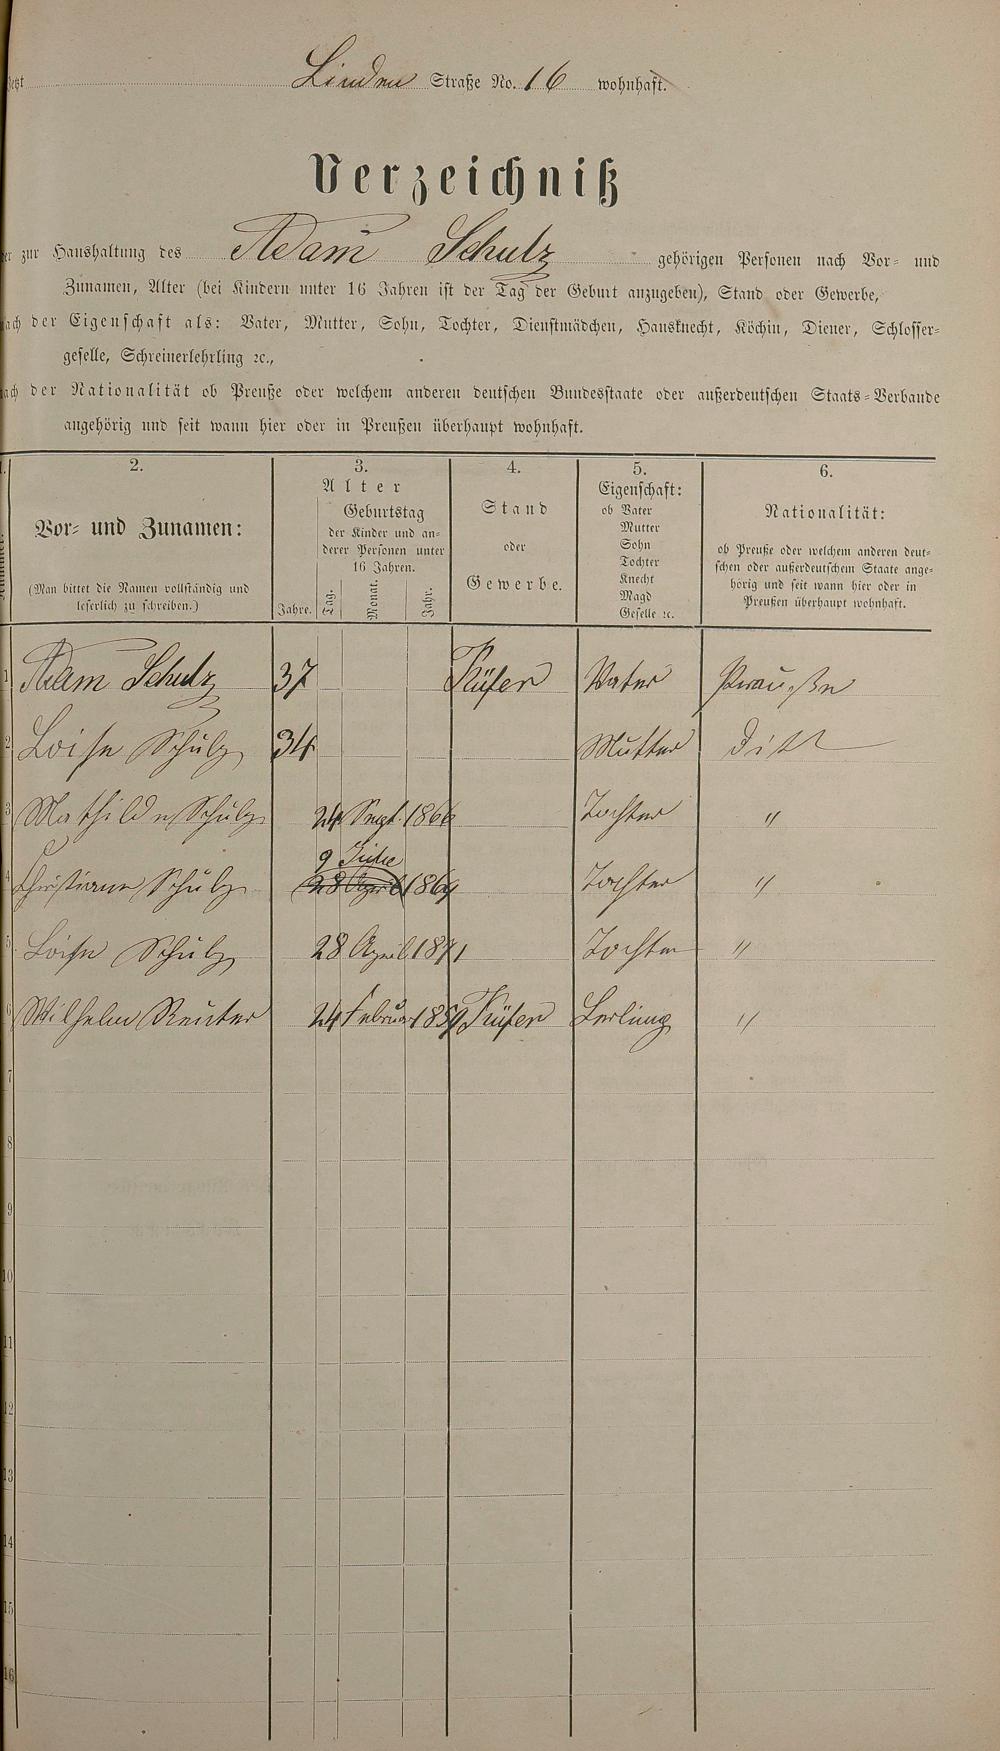 Jetzt Linden Straße No. 16 wohnhaft.
Verzeichniß
der zur Haushaltung des Adam Schulz gehörigen Personen nach Vor- und
Zunamen, Alter (bei Kindern unter 16 Jahren ist der Tag der Geburt anzugeben), Stand oder Gewerbe,
nach der Eigenschaft als: Vater, Mutter, Sohn, Tochter, Dienstmädchen, Hausknecht, Köchin, Diener, Schlosser-
geselle, Schreinerlehrling ꝛc.,
nach der Nationalität ob Preuße oder welchem anderen deutschen Bundesstaate oder außerdeutschen Staats-Verbande
angehörig und seit wann hier oder in Preußen überhaupt wohnhaft.
1. 2. 3. 4. 5. 6.
Nummer.
Vor- und Zunamen:
(Man bittet die Namen vollständig und
leserlich zu schreiben.)
Alter
Jahre.
Geburtstag
der Kinder und an-
derer Personen unter
16 Jahren.
Tag. Monat. Jahr.
Stand
oder
Gewerbe.
Eigenschaft:
ob Vater
Mutter
Sohn
Tochter
Knecht
Magd
Geselle ꝛc.
Nationalität:
ob Preuße oder welchem anderen deut-
schen oder außerdeutschem Staate ange-
hörig und seit wann hier oder in
Preußen überhaupt wohnhaft.
1 Adam Schulz 37 Küfer Vater Preuße
2 Loise Schulz 34 Mutter ditt
3 Mathilde Schulz 24 Sept. 1866 Tochter "
9 Julie
4 Christiane Schulz 28 April 1869 Tochter "
5 Loise Schulz 28 April 1871 Tochter "
6 Wilhelm Reuter 24 Februar 1859 Küfer Lerling "
7
8
9
10
11
12
13
14
15
16